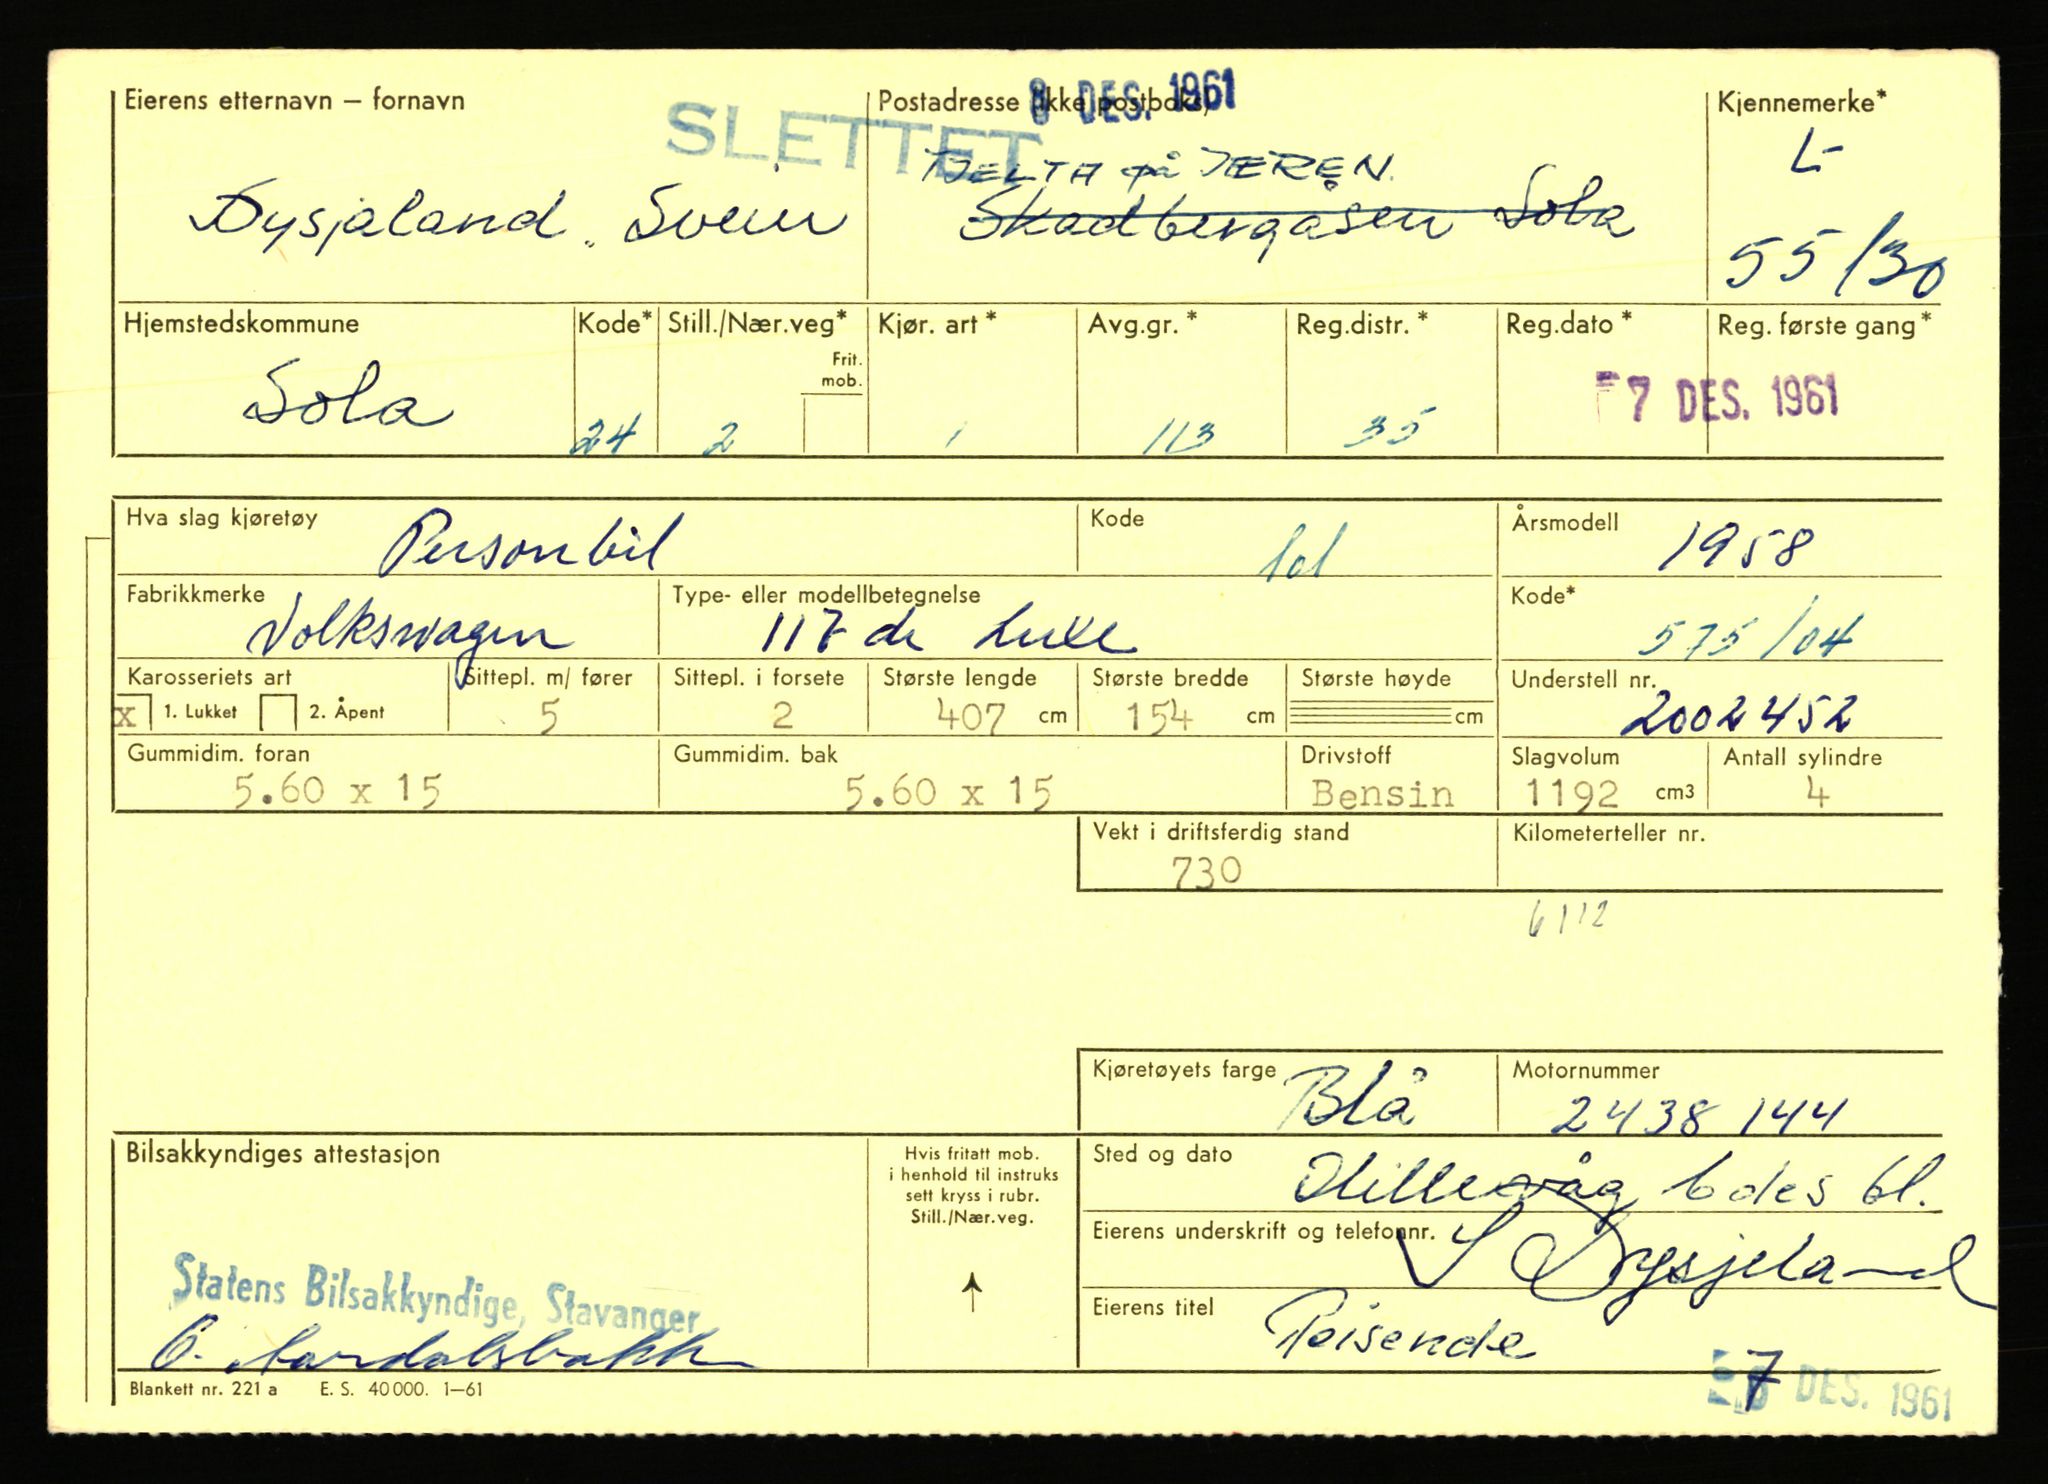 8 DES. 1961
Eierens etternavn – fornavn
Postadresse (ikke postboks)
Kjennemerke*
SLETTET
TJELTA på JÆREN.
L-
Dysjaland, Svein
Skadbergåsen Sola
55/30
Hjemstedskommune
Kode*
Still./Nær.veg*
Kjør. art *
Avg.gr. *
Reg.distr. *
Reg.dato *
Reg. første gang*
Frit. mob.
Sola
24
2
1
113
35
7 DES. 1961
Hva slag kjøretøy
Personbil
Kode
101
Årsmodell
1958
Fabrikkmerke
Volkswagen
Type- eller modellbetegnelse
117 de Luxe
Kode*
575/04
Karosseriets art
x 1. Lukket
2. Åpent
Sittepl. m/ fører
5
Sittepl. i forsete
2
Største lengde
407 cm
Største bredde
154 cm
Største høyde
cm
Understell nr.
2002452
Gummidim. foran
5.60 x 15
Gummidim. bak
5.60 x 15
Drivstoff
Bensin
Slagvolum
1192 cm3
Antall sylindre
4
Vekt i driftsferdig stand
730
Kilometerteller nr.
6112
Kjøretøyets farge
Blå
Motornummer
2438144
Bilsakkyndiges attestasjon
Hvis fritatt mob.
i henhold til instruks
sett kryss i rubr.
Still./Nær.veg.
Sted og dato
Hillevåg 6 des 61.
Eierens underskrift og telefonnr.
S Dysjeland
Statens Bilsakkyndige, Stavanger
Eierens titel
Reisende
7 DES. 1961
Blankett nr. 221 a E. S. 40 000. 1–61